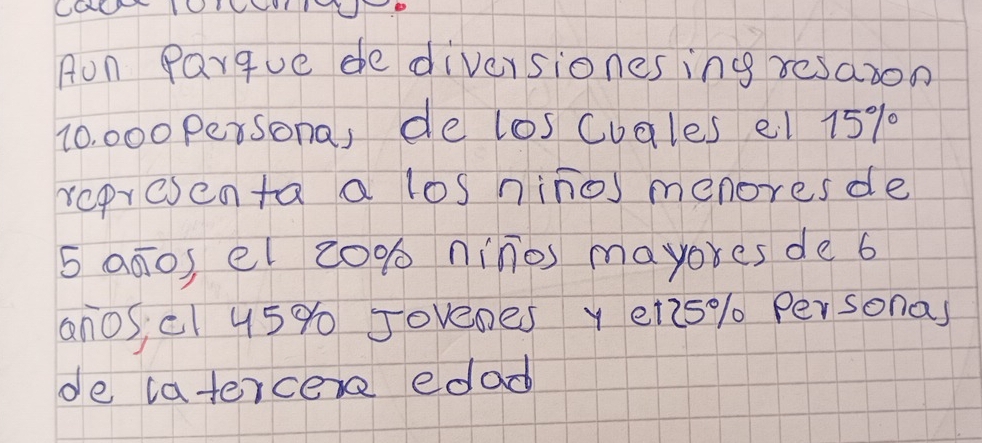 Aun Parque de diversiones ingresaron
10.000 Personas de los cuales el 15%
representa a los niños menores de
5 años, el 20% niños mayores de 6
años, el 45% Jovenes y el 25% Personas
de la tercera edad